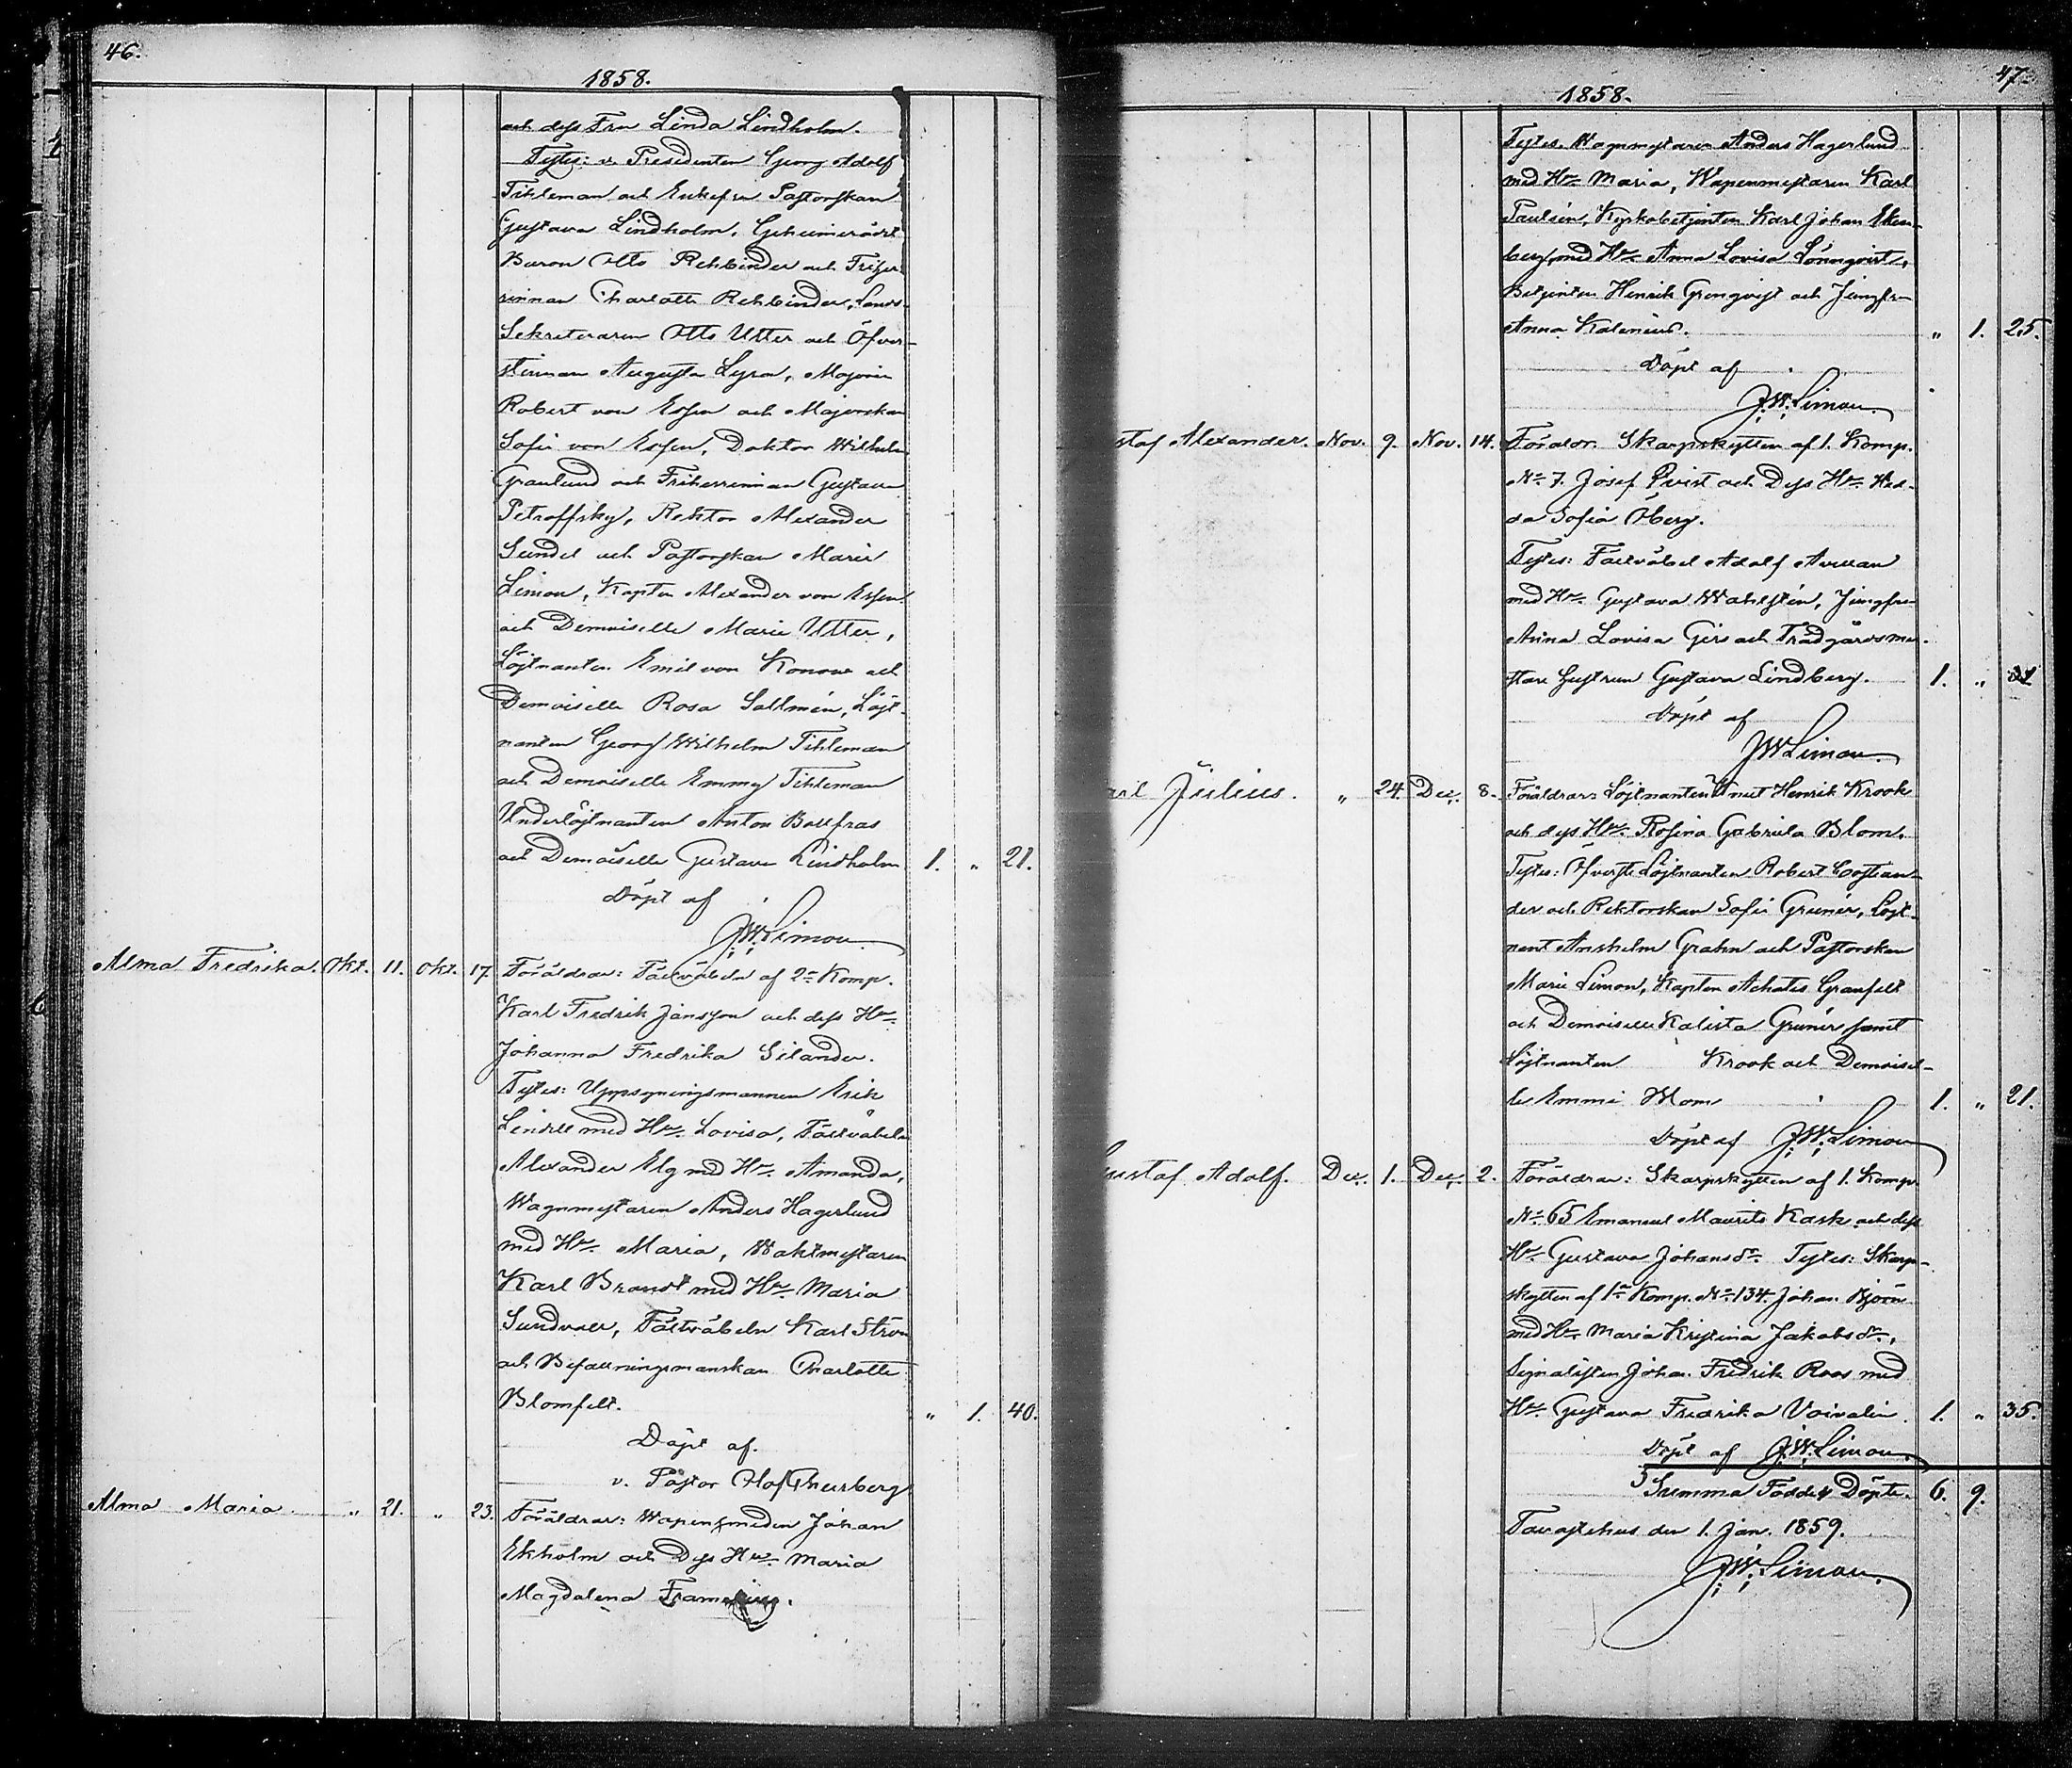 46.
1858.
och dess Fru Linda Lindholm.
Testes: v. Presidenten Georg Adolf
Tihleman och Enkefru Pastorskan
Gustava Lindholm, Geheimerådet
Baron Otto Rehbinder och Friher-
rinnan Charlotte Rehbinder, Lands-
Sekreteraren Otto Utter och Öfver-
stinnan Augusta Lyra, Majoren
Robert von Essen och Majorskan
Sofie von Essen, Doktor Wilhelm
Granlund och Friherrinnan Gustava
Petroffsky, Rektor Alexander
Sundel och Pastorskan Marie
Limon, Kapten Alexander von Essen
och Demoiselle Marie Utter,
Löjtnanten Emil von Konow och
Demoiselle Rosa Sallmén, Löjt-
nanten Georg Wilhelm Tihleman
och Demoiselle Emmy Tihleman
Underlöjtnanten Anton Bollfras
och Demoiselle Gustava Lindholm 1. „ 21.
Döpt af
J.W. Limon
Alma Fredrika. Okt. 11. Okt. 17. Föräldrar: Fältväbeln af 2a Komp.
Karl Fredrik Jansson och dess Hu
Johanna Fredrika Silander.
Testes: Uppsyningsmannen Erik
Lindell med Hu. Lovisa, Fältväbeln
Alexander Elg med Hu. Amanda,
Wagnmästaren Anders Hagerlund
med Hu. Maria, Waktmästaren
Karl Brandt med Hu. Maria
Sundvall, Fältväbeln Karl Ström
och Befallningsmanskan Charlotte
Blomfelt. „ 1. 40.
Döpt af.
v. Pastor Olof
Alma Maria „ 21. „ 23. Föräldrar: Wapensmeden Johan
Ekholm och Dess Hu. Maria
Magdalena
47.
1858.
Testes. Wagnmästaren Anders Hagerlund
med Hu. Maria, Wapenmästaren Karl
Paulsén, Kyrkobetjenten Karl Johan Eken-
berg med Hu. Anna Lovisa Lönnqvist,
Betjenten Henrik Grönqvist och Jungfru
Anna Kalenius. „ 1. 25.
Döpt af
J.W. Limon.
staf Alexander. Nov. 9. Nov. 14. Föräldr. Skarpskytten af 1. Komp.
No 7. Josef Qvist och Dess Hu. Hed-
da Sofia Öberg.
Testes: Fältväbel Adolf Avellan
med Hu. Gustava Wahlstén, Jungfru
Anna Lovisa Girs och Trädgårdsmä-
stare Hustrun Gustava Lindberg. 1. „
Döpt af
J.W. Limon.
arl Julius. „ 24. Dec. 8. Föräldrar: Löjtnanten Knut Henrik Krook
och dess Hu. Rosina Gabriela Blom.
Testes: Öfverste Löjtnanten Robert Costian-
der och Rektorskan Sofie Grenér, Löjt-
nant Anshelm Grahn och Pastorskan
Marie Limon, Kapten Achates Granfelt
och Demoiselle Kalista Grenér samt
Löjtnanten Krook och Demoisel-
le Emmi Blom 1. „ 21.
Döpt af J.W. Limon
ustaf Adolf. Dec. 1. Dec. 2. Föräldrar: Skarpskytten af 1. Komp.
No 65 Emanuel Maurits Kask och dess
Hu. Gustava Johansdr. Testes: Skarp-
skytten af 1a Komp. No 134. Johan Björn
med Hu. Maria Kristina Jakobsdr.,
Signalisten Johan Fredrik Roos med
Hu. Gustava Fredrika Voivalin. 1. „ 35.
Döpt af J.W. Limon.
Summa Födde & Döpte. 6. 9.
Tavastehus den 1. Jan. 1859.
J.W. Limon.